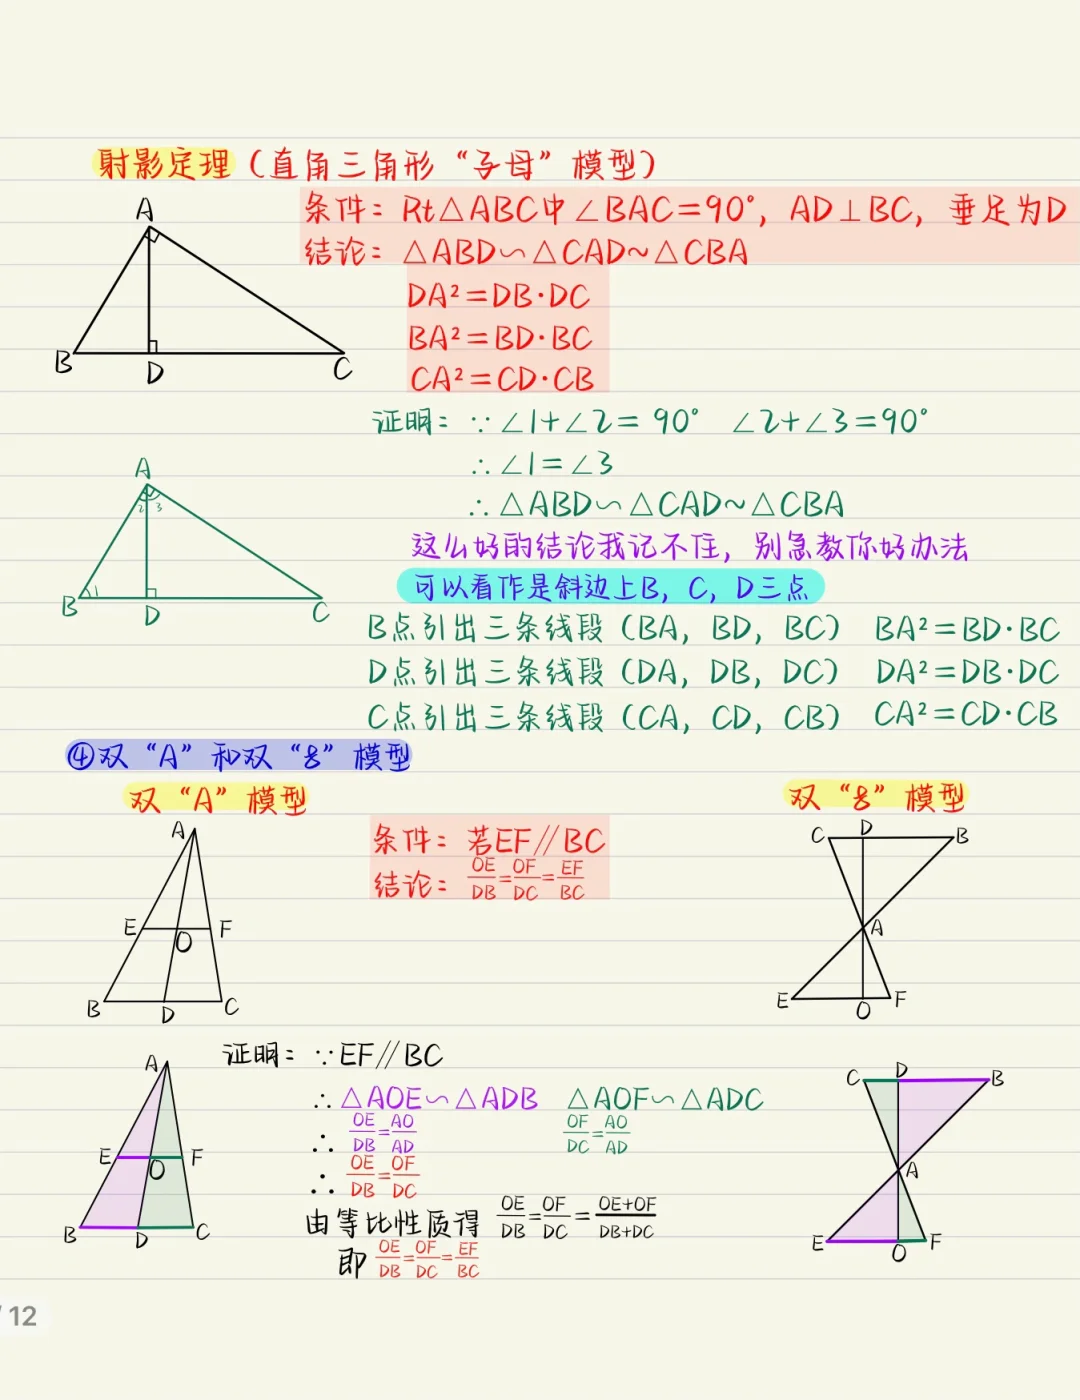 射影定理（直角三角形“子母”模型）
条件：Rt△ABC中∠BAC=90°，AD⊥BC，垂足为D
结论：△ABD∽△CAD~△CBA
DA²=DB·DC
BA²=BD·BC
CA²=CD·CB
A
B
D
C
证明：∵∠1+∠2=90° ∠2+∠3=90°
∴∠1=∠3
∴△ABD∽△CAD~△CBA
A
2 3
1
B
D
C
这么好的结论我记不住，别急教你好办法
可以看作是斜边上B，C，D三点
B点引出三条线段（BA，BD，BC） BA²=BD·BC
D点引出三条线段（DA，DB，DC） DA²=DB·DC
C点引出三条线段（CA，CD，CB） CA²=CD·CB
④双“A”和双“8”模型
双“A”模型
双“8”模型
条件：若EF//BC
结论：OE/DB=OF/DC=EF/BC
A
E O F
B D C
C D B
A
E O F
证明：∵EF//BC
∴△AOE∽△ADB △AOF∽△ADC
∴ OE/DB=AO/AD OF/DC=AO/AD
∴ OE/DB=OF/DC
由等比性质得 OE/DB=OF/DC=OE+OF/DB+DC
即 OE/DB=OF/DC=EF/BC
A
E O F
B D C
C D B
A
E O F
/ 12